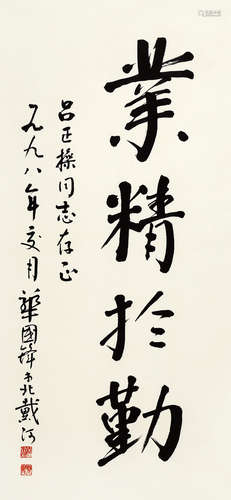 業精於勤
呂正操同志存正
一九九八年夏月華國鋒于北戴河